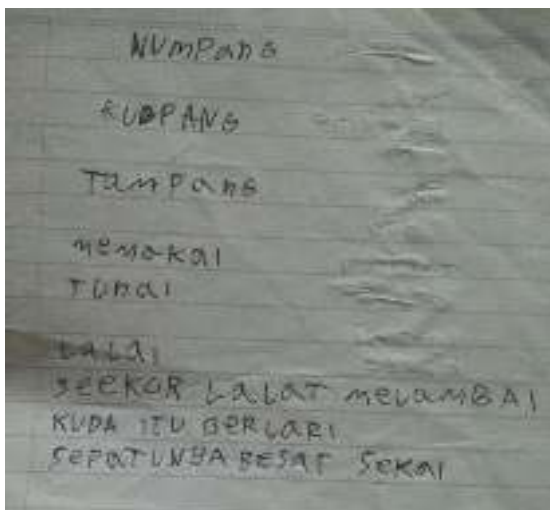 NUmPanG
KUPANG
TamPanG
memakai
Tunai
LaLai
SeEKOR LaLaT meLamBAI
KUDA ITU BeRLaRI
SePaTUNYA BESAR SeKaI